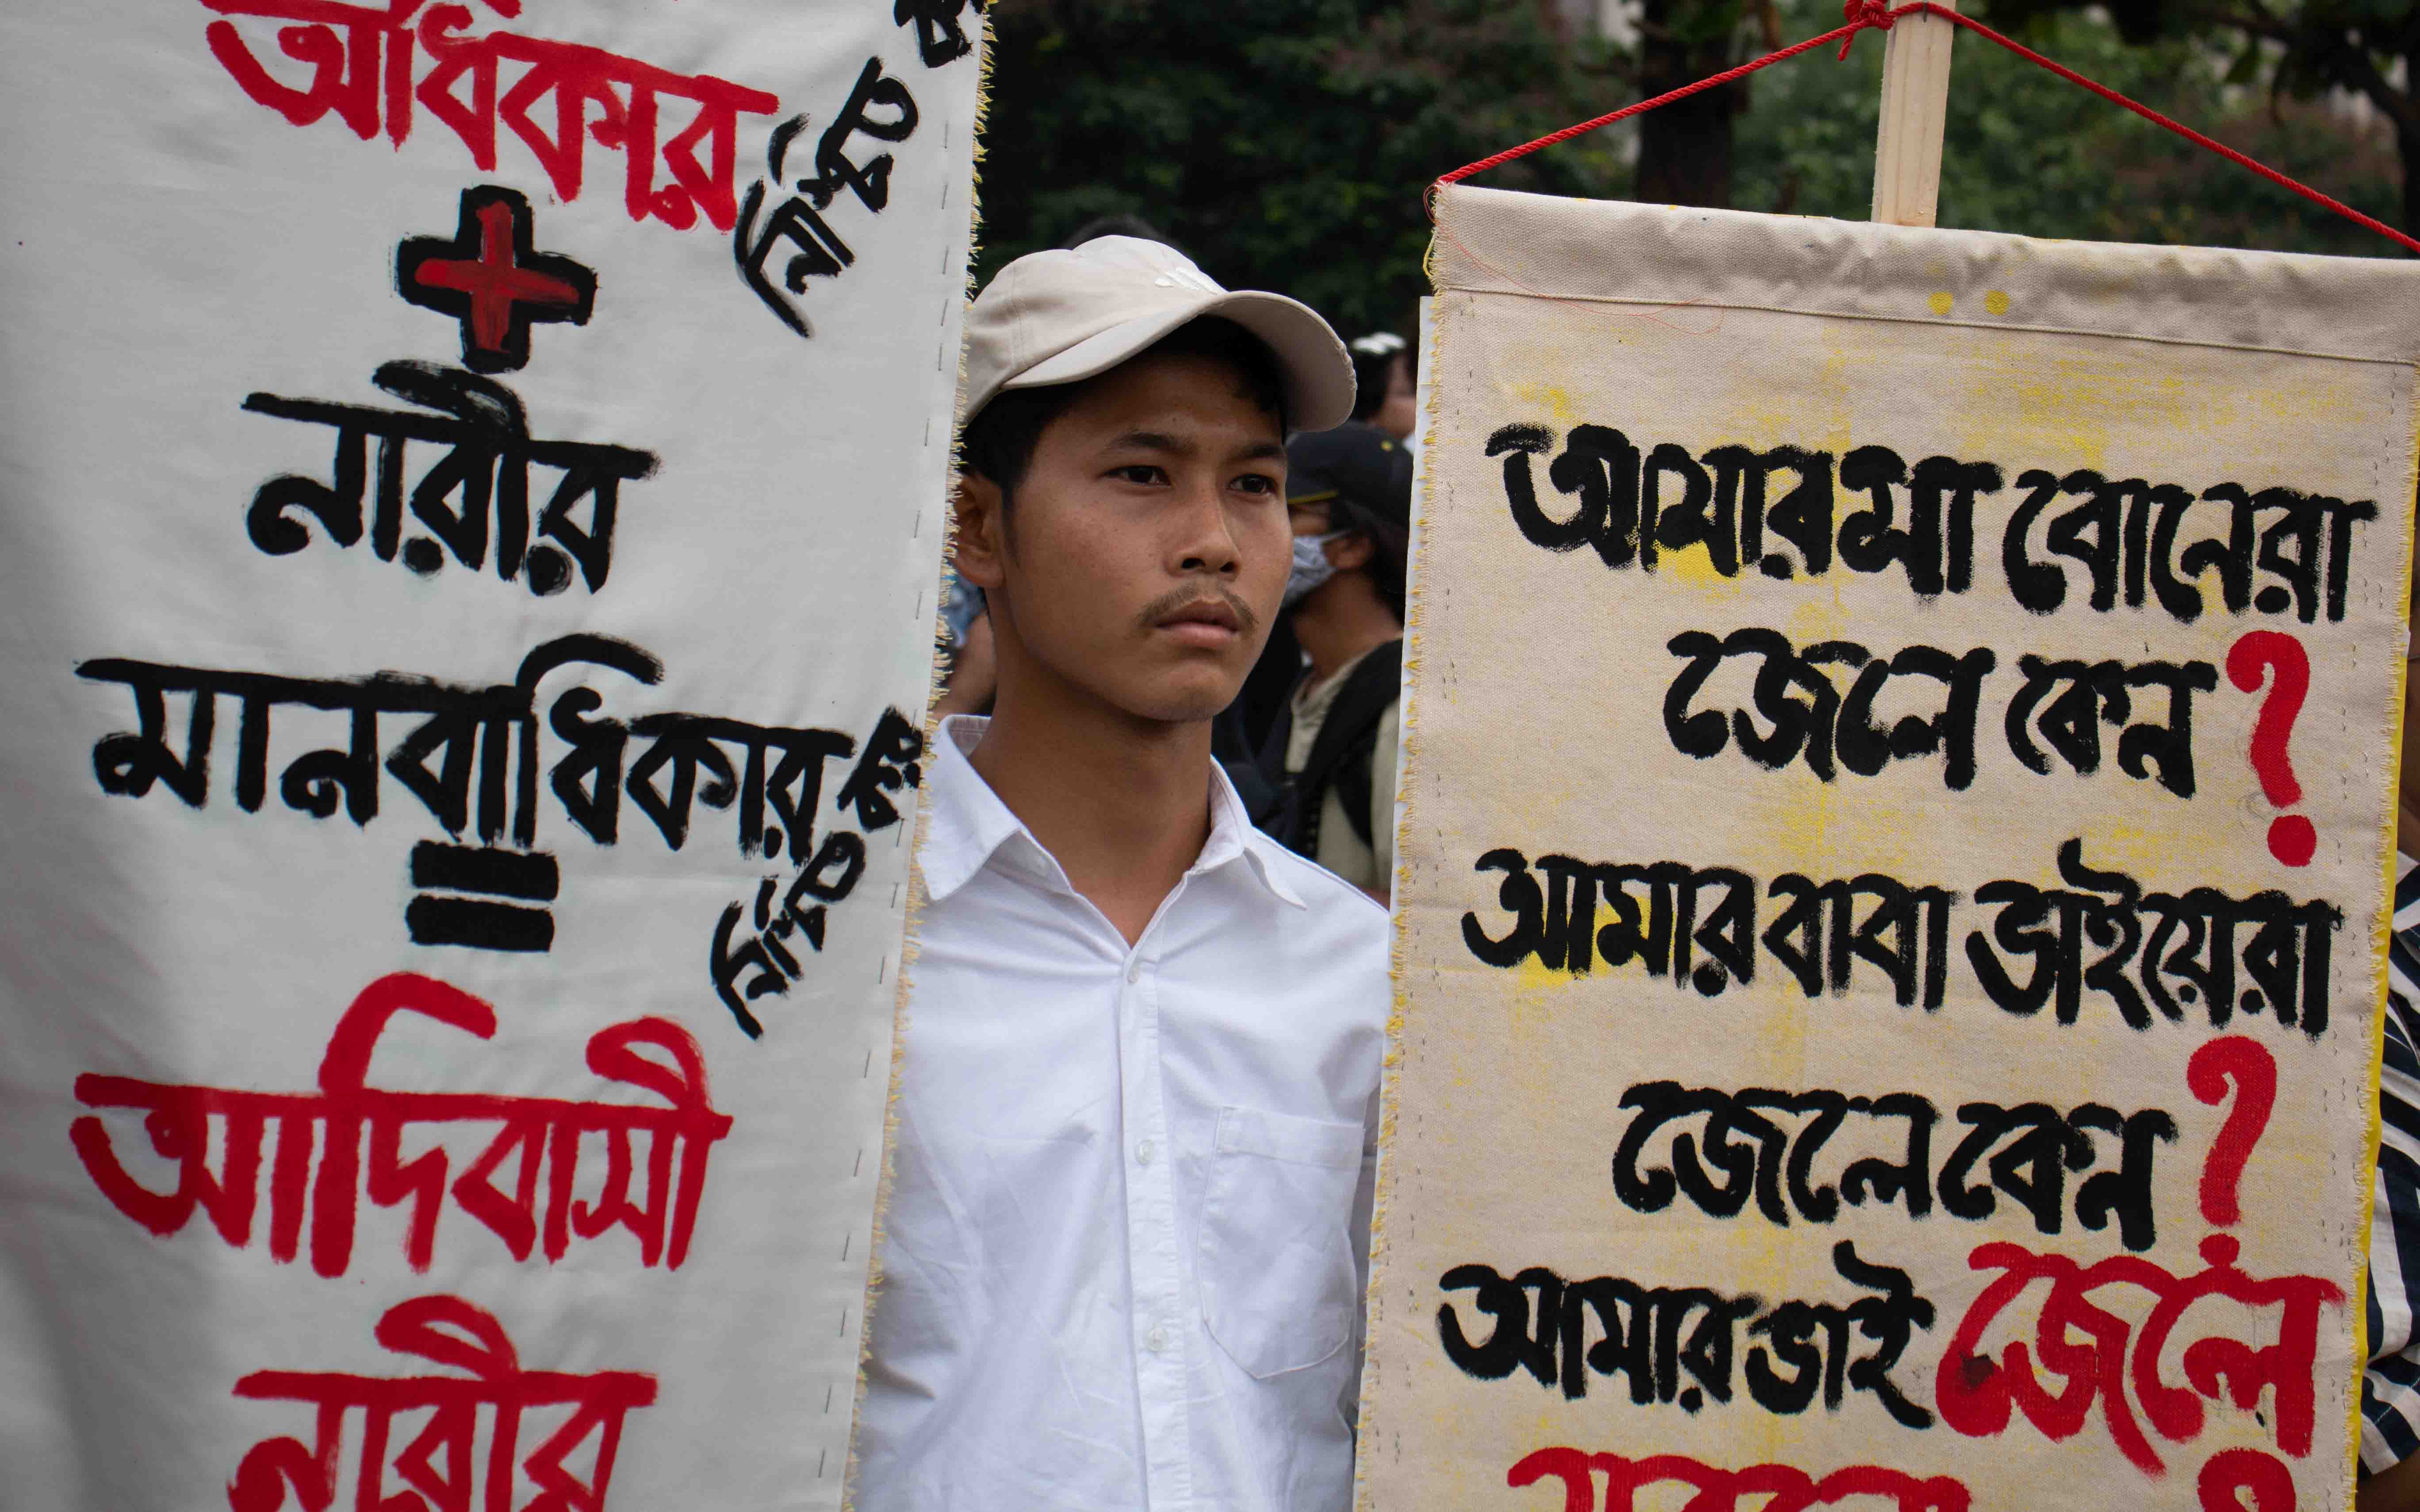 অধিকার
নিশ্চিত
+
নারীর
মানবাধিকার
নিশ্চিত
=
আদিবাসী
নারীর
আমার মা বোনেরা
জেলে কেন?
আমার বাবা ভাইয়েরা
জেলে কেন?
আমার ভাই জেলে